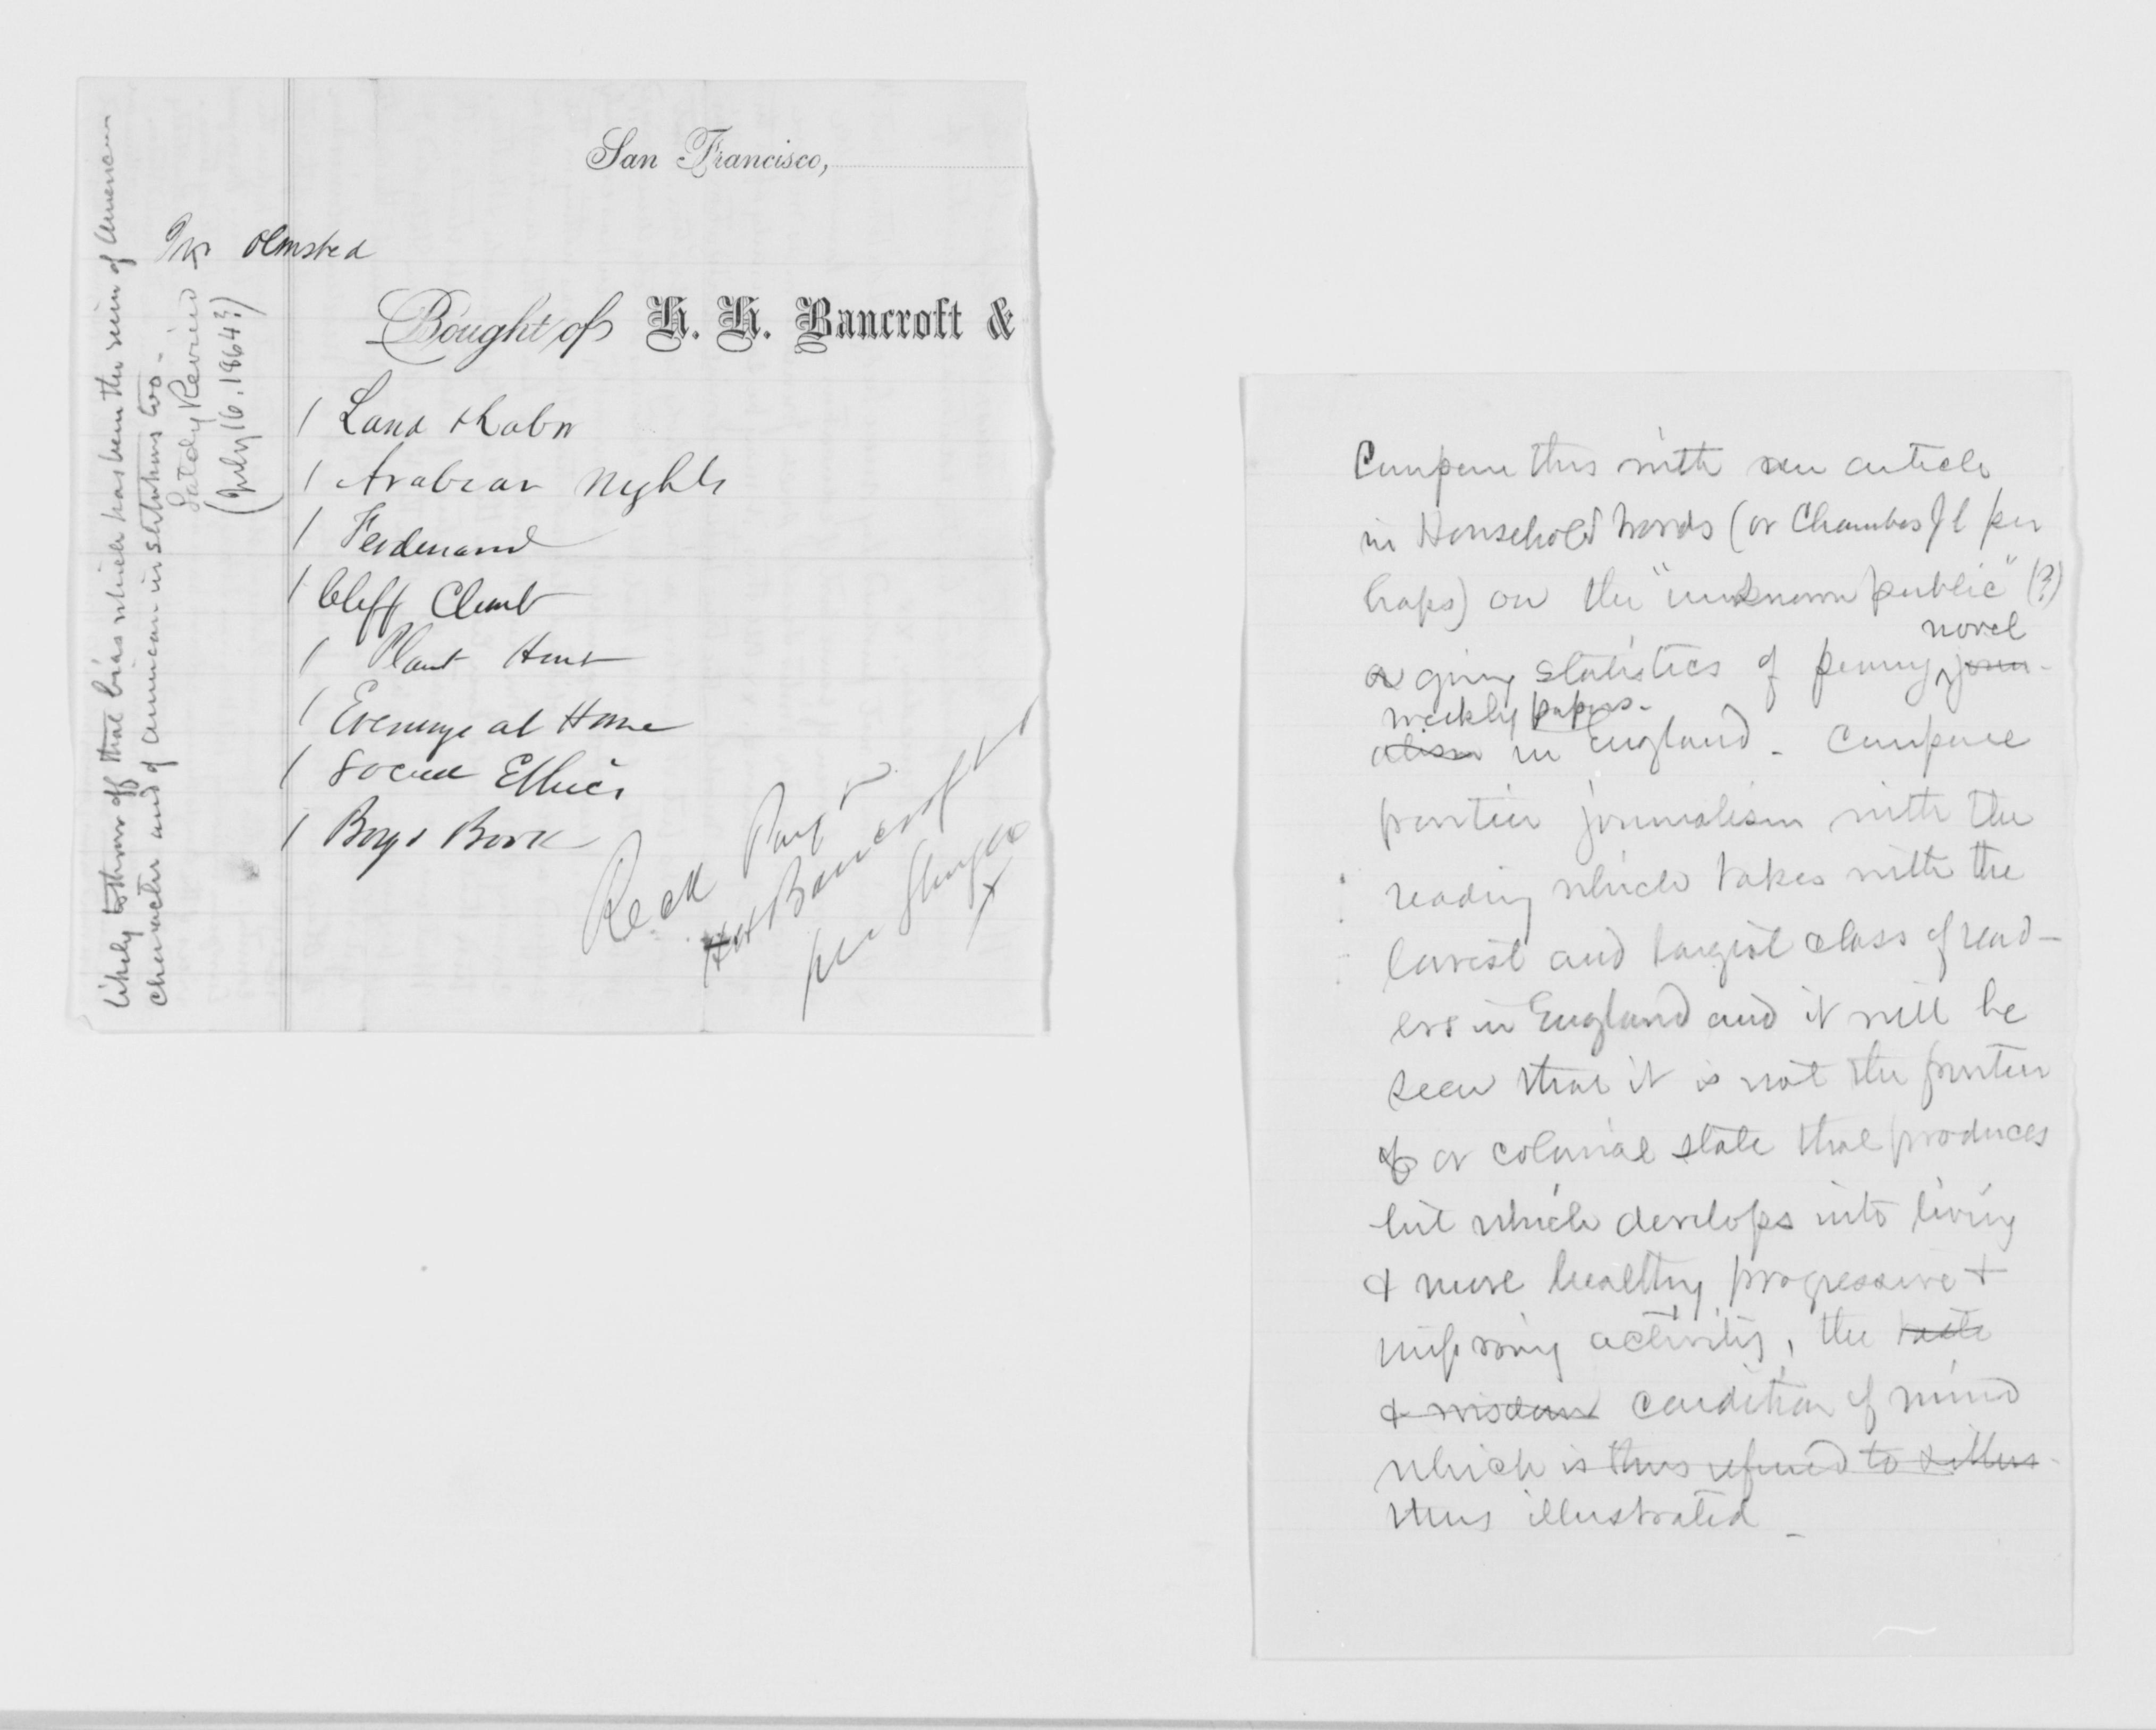 San Francisco,
Mr Olmsted
Bought of H. H. Bancroft &
1 Land & Labor
1 Arabian Nights
1 Ferdinand
1 Cliff Climb
1 Plant Hunt
1 Evenings at Home
1 Social Ethics
1 Boys Book
Recd Payt
HH Bancroft
per
likely to throw off that bias which has been the ruin of American
character and of American institutions too -
Satdy Review
(July 16. 1864?)
Compare this with an article
in Household Words (or Chambers Jl per
haps) on the "unknown public" (?)
novel
or giving statistics of penny jour-
weekly papers-
alism in England - Compare
frontier journalism with the
reading which takes with the
lowest and largest class of read-
ers in England and it will be
seen that it is not the frontier
or colonial state that produces
but which develops into living
& more healthy progressive &
improving activity, the taste
& wisdom condition of mind
which is thus refined to & illus-
thus illustrated -